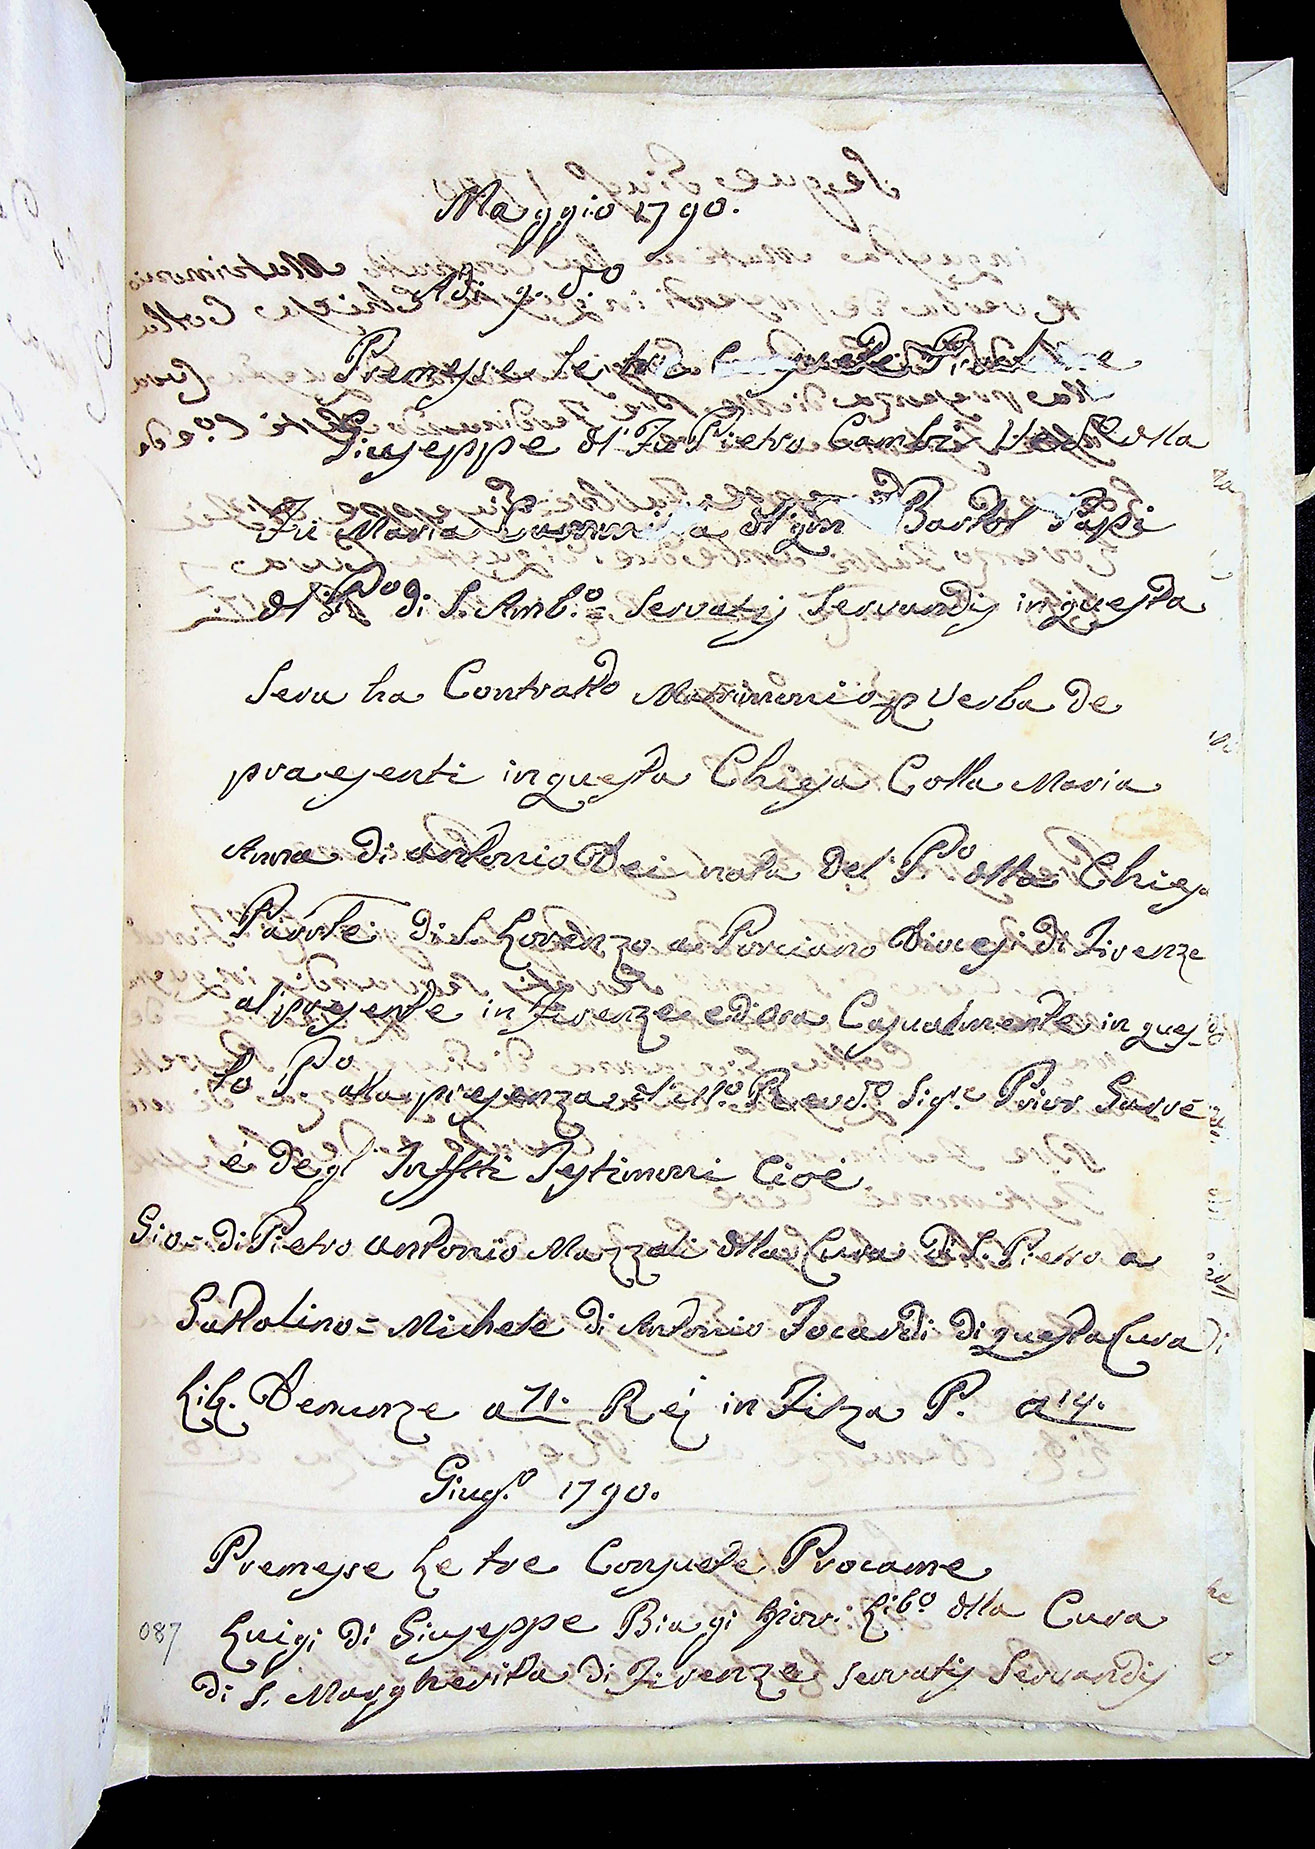 Maggio 1790.
Adi 9. do
Premesse le tre Consuete
Giuseppe dl Fu Pietro Cambi Ved.o dlla
Fu Maria Cammilla dl qm Bartol Papi
dl Po di S. Amb.o = Servatis Servandis in questa
Sera ha Contratto Matrimonio p Verba de
praesenti in questa Chiesa Colla Maria
Anna di Antonio Dei nata del Po dlla Chiesa
Parrle di S. Lorenzo a Porciano Diocesi di Firenze
al presente in Firenze ed ora Casualmente in ques-
to Po alla presenza dl Mo Revd.o Sig.e Prior Sarré
é degl' Infftti Testimoni Cioé
Gio = di Pietro Antonio Mazzoli dlla Cura di S. Pietro a
Gattolino = Michele di Antonio Focardi di questa Cura
Lib. Denunze a 71. Rej in Filza P. a 14.
Giug.o 1790.
Premesse Le tre Consuete Procame
Luigi di Giuseppe Biagi Giov: Lib.o dlla Cura
di S. Margherita di Firenze servatis Servandis
087